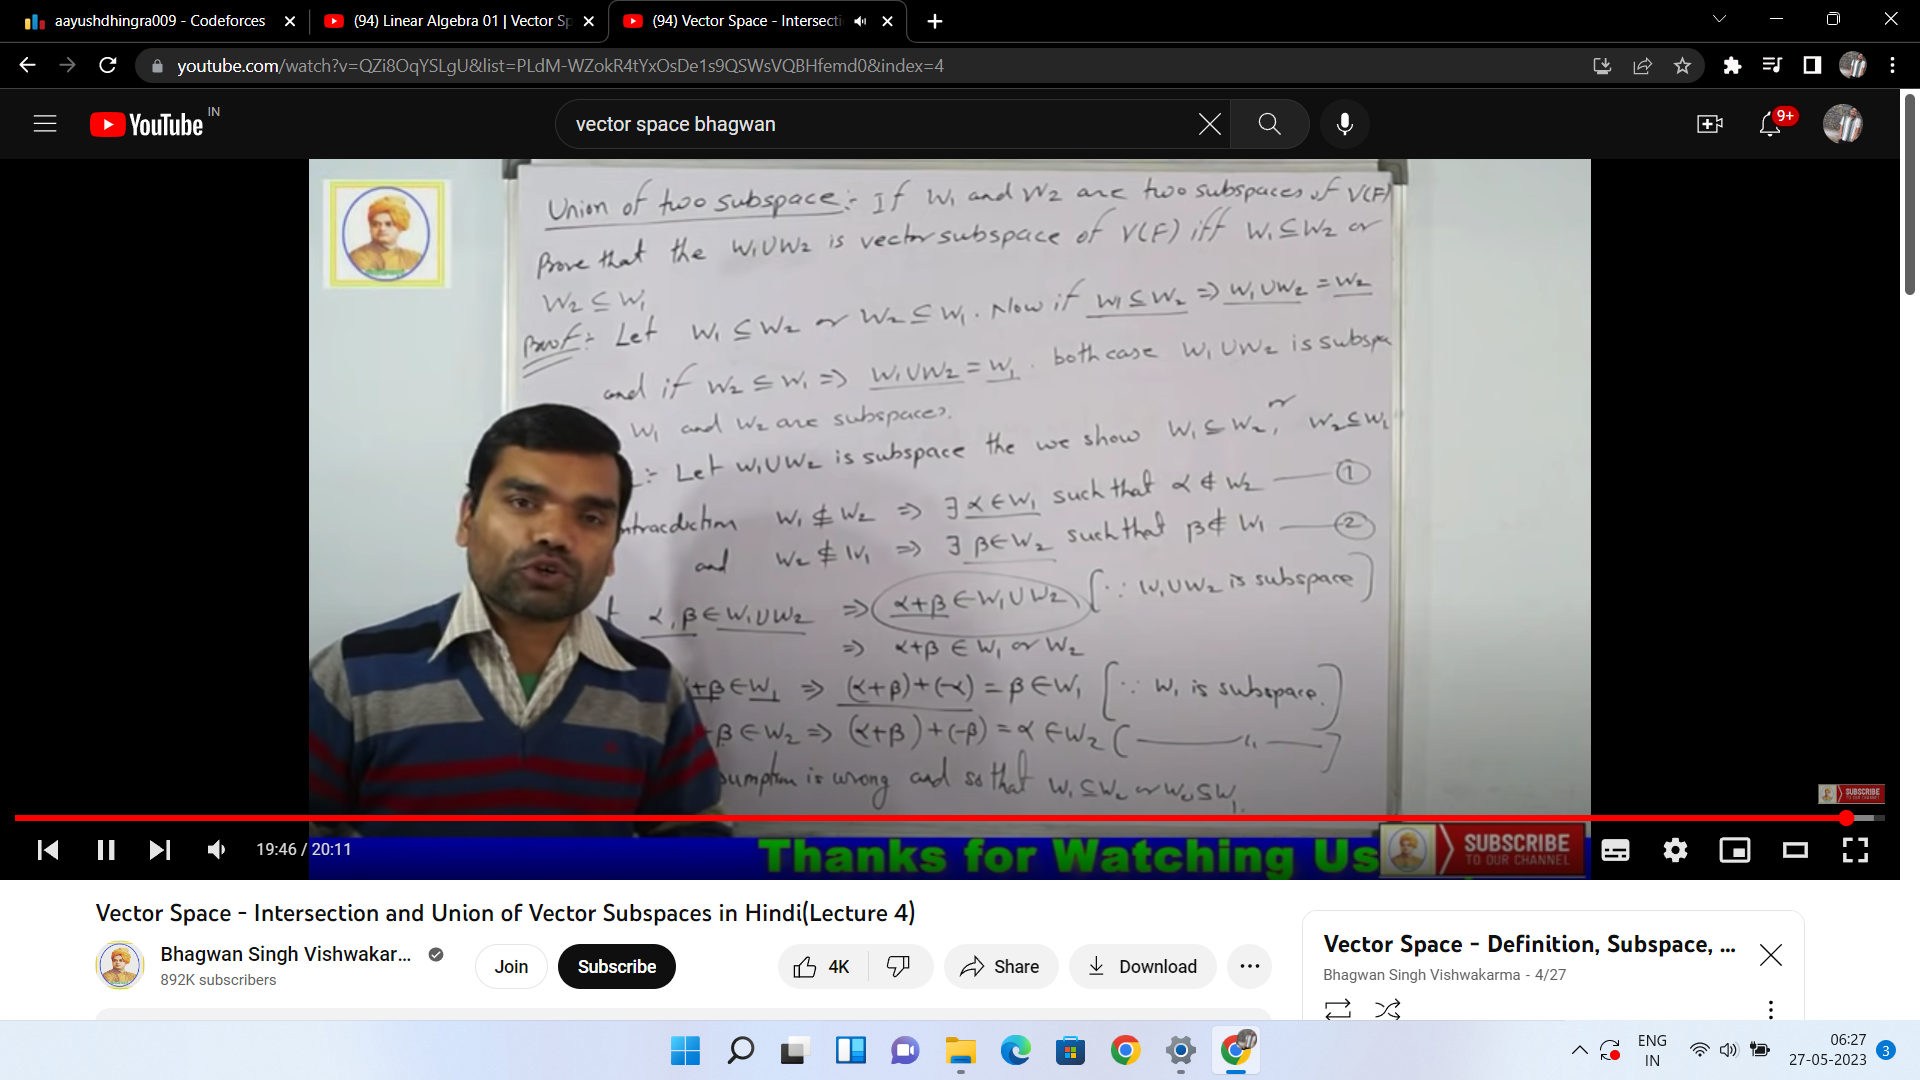 aayushdhingra009 - Codeforces
(94) Linear Algebra 01 | Vector Sp
(94) Vector Space - Intersecti
youtube.com/watch?v=QZi8OqYSLgU&list=PLdM-WZokR4tYxOsDe1s9QSWsVQBHfemd0&index=4
YouTube IN
vector space bhagwan
9+
Union of two subspace:- If W₁ and W₂ are two subspaces of V(F)
Prove that the W₁∪W₂ is vector subspace of V(F) iff W₁⊆W₂ or
W₂ ⊆ W₁
Proof:- Let W₁ ⊆ W₂ or W₂ ⊆ W₁. Now if W₁⊆W₂ => W₁∪W₂ = W₂
and if W₂ ⊆ W₁ => W₁∪W₂ = W₁. both case W₁∪W₂ is subspa
W₁ and W₂ are subspaces.
:- Let W₁∪W₂ is subspace the we show W₁⊆W₂, or W₂⊆W₁
ntradiction W₁ ⊄ W₂ => ∃ α∈W₁ such that α ∉ W₂ —— ①
and W₂ ⊄ W₁ => ∃ β∈W₂ such that β∉ W₁ —— ②
α, β ∈ W₁∪W₂ => α+β ∈ W₁∪W₂ [∵ W₁∪W₂ is subspace]
=> α+β ∈ W₁ or W₂
+β ∈ W₁ => (α+β)+(-α) = β ∈ W₁ [∵ W₁ is subspace.]
β ∈ W₂ => (α+β)+(-β) = α ∈ W₂ [—— 〃 ——]
sumption is wrong and so that W₁⊆W₂ or W₂⊆W₁.
SUBSCRIBE
19:46 / 20:11
Thanks for Watching Us
SUBSCRIBE
TO OUR CHANNEL
Vector Space - Intersection and Union of Vector Subspaces in Hindi(Lecture 4)
Bhagwan Singh Vishwakar...
892K subscribers
Join
Subscribe
4K
Share
Download
Vector Space - Definition, Subspace, ...
Bhagwan Singh Vishwakarma - 4/27
ENG
IN
06:27
27-05-2023
3